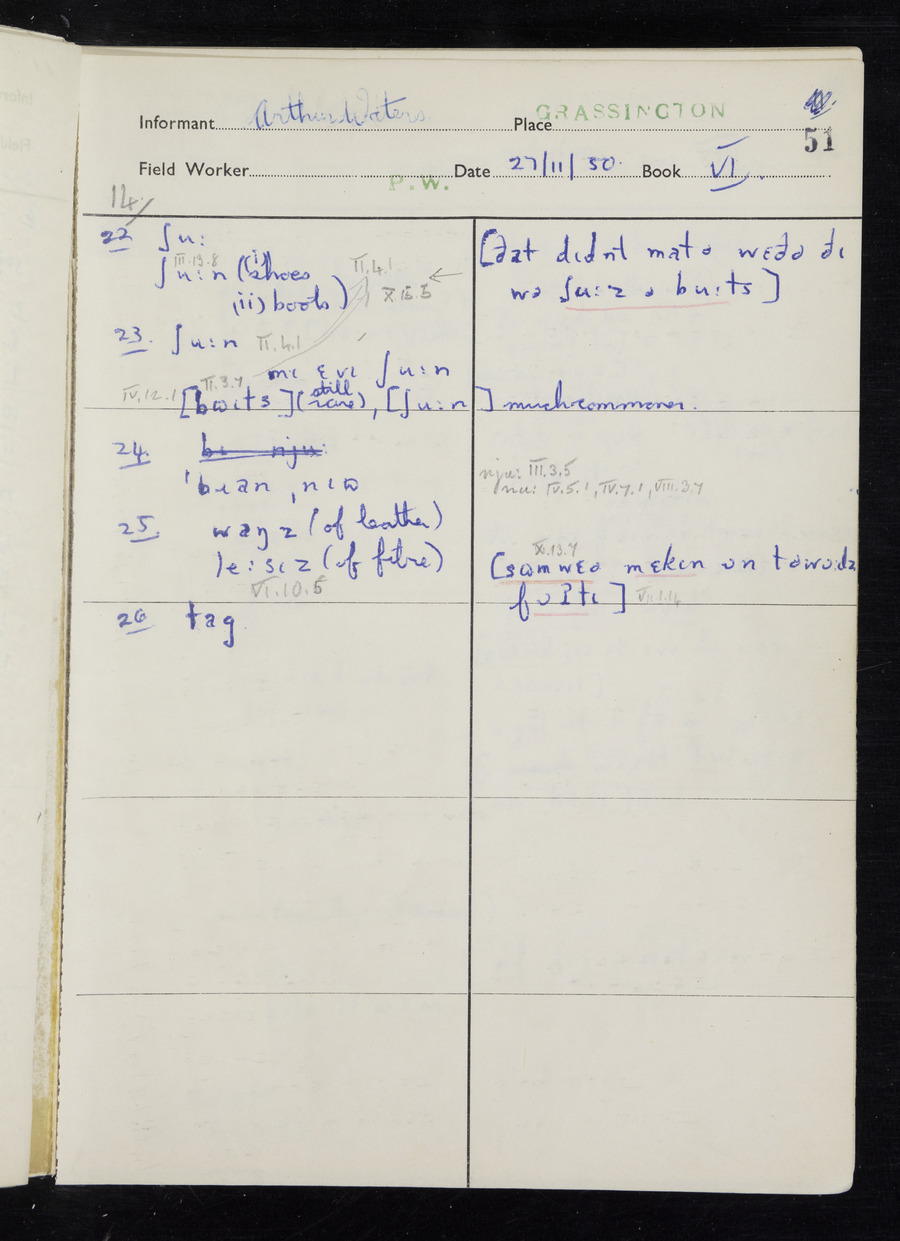 Informant Arthur Waters Place GRASSINGTON 51
Field Worker P.W. Date 27/11/50. Book VI.
14/
22 ʃu:
III.13.8
ʃu:n ((i) shoes
(ii) boots)
II.4.1
X.15.5
[ðat dɪdnt matə wɛðə ðɪ
wə ʃu:z ə bu:ts]
23. ʃu:n II.4.1
mɪ ɛvɪ ʃu:n
IV.12.1 II.3.7
[bʊɪts] (still rare), [ʃu:n] much commoner.
24.
ˈbɹanˌnɪʊ
nju: III.3.5
nu: IV.5.1, IV.7.1, VIII.3.7
25. waŋz (of leather)
le:sɪz (of fibre)
VI.10.5
X.13.7
[sʊmwɛə mɛkɪn ɒn təwədz
fɔʔtɪ] VII.1.14
26 tag